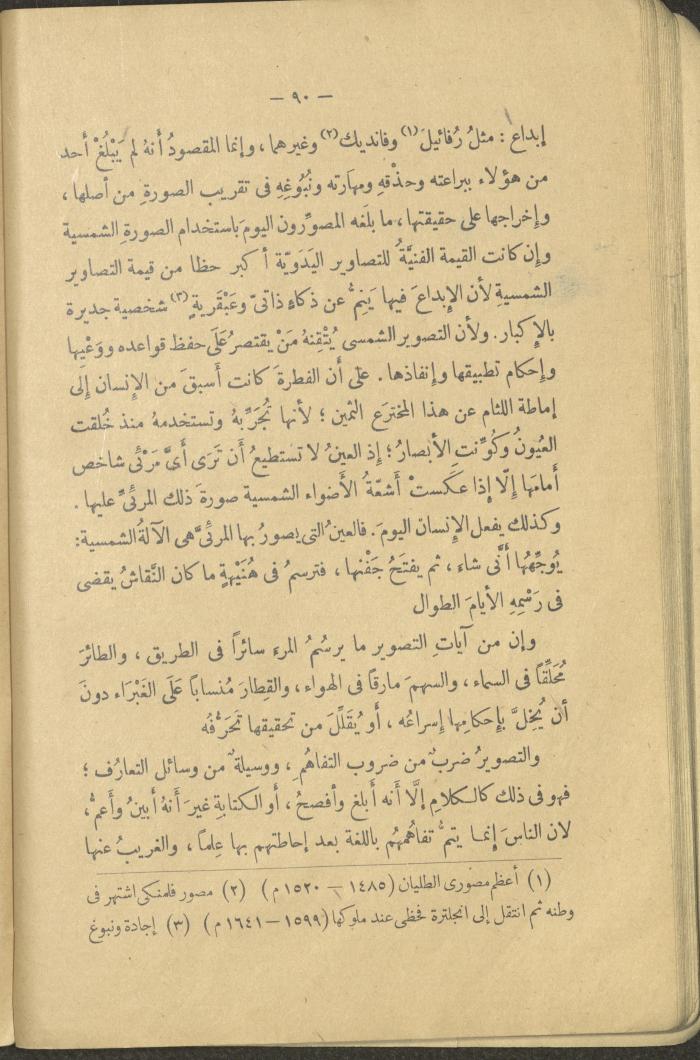 — ٩٠ —
إبداع : مثلُ رُفائيلَ (١) وفانديك (٢) وغيرهما ، وإنما المقصودُ أَنهُ لم يَبْلُغْ أحد
من هؤلاء ببراعته وحذْقهِ ومهَارته ونُبُوغِهِ فى تقريب الصورةِ من أصلها ،
وإخراجها على حقيقتها ، ما بلَغه المصوِّرون اليومَ باستخدام الصورةِ الشمسية
وإن كانت القيمة الفنيَّةُ للتصاوير اليَدَوِيّة أكبر حظا من قيمة التصاوير
الشمسيةِ لأن الإِبداعَ فيها يَنِمُّ عن ذكاءٍ ذاتىّ وعَبْقَريةٍ (٣) شخصية جديرة
بالإكبار . ولأن التصوير الشمسى يُتْقِنهُ مَنْ يقتصرُ عَلَى حفظ قواعده ووَعْيِها
وإحكام تطبيقها وإنفاذها . على أن الفطرةَ كانت أسبقَ منَ الإِنسان إلَى
إماطة اللثام عن هذا المخترَع الثمين ؛ لأنها تُجَرِّبهُ وتستخدمهُ منذ خُلقت
العيُونُ وكُوِّنتِ الأبصارُ ؛ إذ العينُ لا تستطيعُ أن تَرَى أَىَّ مَرْئىّ شاخص
أمامَها إلّا إذا عكَستْ أشعّةُ الأضواء الشمسية صورةَ ذلك المرئىِّ عليها .
وكذلك يفعل الإنسان اليومَ . فالعينُ التى يصورُ بها المرئىَّ هى الآلةُ الشمسية :
يُوجِّهُها أنَّى شاء ، ثم يفتَحُ جَفْنها ، فترسمُ فى هُنَيْهةٍ ما كان النَّقاشُ يقضى
فى رَسْمِهِ الأيامَ الطوال
وإن من آياتِ التصوير ما يرسُمُ المرءَ سائراً فى الطريق ، والطائرَ
مُحَلِّقًا فى السماء ، والسهمَ مارقاً فى الهواء ، والقطارَ مُنساباً عَلَى الغَبْرَاء دونَ
أن يُخِلَّ بإحكامها إسراعُه ، أو يُقَلِّلَ من تحقيقها تَحَرُّفُه
والتصويرُ ضربٌ من ضروب التفاهُمِ ، ووسيلةٌ من وسائل التعارُف ؛
فهو فى ذلك كالكلامِ إلَّا أنه أبلغ وأفصحُ ، أو الكتابةِ غيرَ أنهُ أبينُ وأعمُّ ،
لان الناسَ إنما يتمُّ تفاهُمهُم باللغة بعد إحاطتهم بها عِلماً ، والغريبُ عنها
(١) أعظم مصورى الطليان (١٤٨٥ — ١٥٢٠ م) (٢) مصور فلمنكى اشتهر فى
وطنه ثم انتقل إلى انجلترة فحظى عند ملوكها (١٥٩٩ — ١٦٤١ م) (٣) إجادة ونبوغ